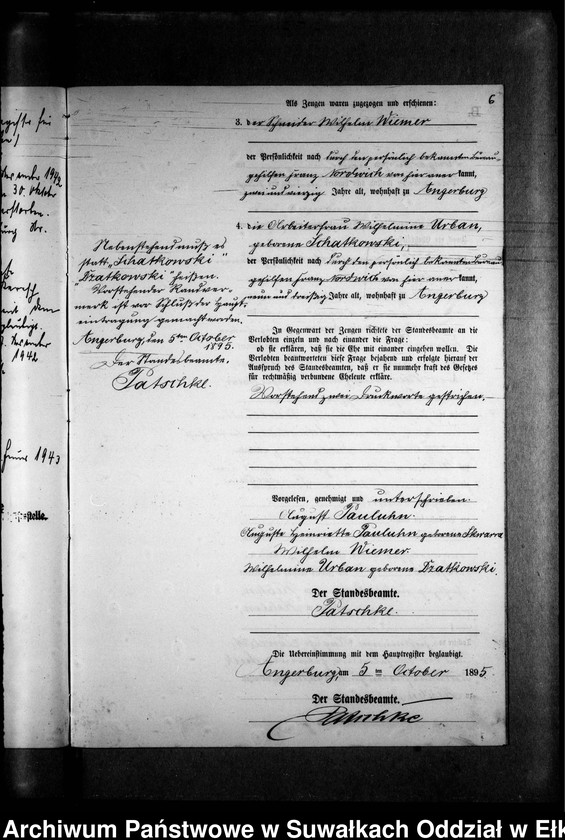 6
Als Zeugen waren zugezogen und erschienen:
3. der Schneider Wilhelm Wiemer
der Persönlichkeit nach durch den persönlich bekannten Bureau-
gehilfen Franz Nordwich von hier aner kannt,
zwei und vierzig Jahre alt, wohnhaft zu Angerburg
4. die Arbeiterfrau Wilhelmine Urban,
geborene Schatkowski,
der Persönlichkeit nach durch den persönlich bekannten Bureau-
gehilfen Franz Nordwich von hier aner kannt,
neun und dreißig Jahre alt, wohnhaft zu Angerburg
In Gegenwart der Zeugen richtete der Standesbeamte an die
Verlobten einzeln und nach einander die Frage:
ob sie erklären, daß sie die Ehe mit einander eingehen wollen. Die
Verlobten beantworteten diese Frage bejahend und erfolgte hierauf der
Ausspruch des Standesbeamten, daß er sie nunmehr kraft des Gesetzes
für rechtmäßig verbundene Eheleute erkläre.
Vorstehend zwei Druckworte gestrichen.
Vorgelesen, genehmigt und unterschrieben
August Pauluhn.
Auguste Heinriette Pauluhn geborene Skwarra
Wilhelm Wiemer.
Wilhelmine Urban geborene Dzatkowski.
Der Standesbeamte.
Patschke.
Die Uebereinstimmung mit dem Hauptregister beglaubigt.
Angerburg, am 5 ten October 1895.
Der Standesbeamte.
Patschke
Nebenstehend muß es
statt "Schatkowski"
"Dzatkowski" heißen.
Vorstehender Randver-
merk ist vor Schluß der Haupt-
eintragung gemacht worden.
Angerburg, den 5ten October
1895.
Der Standesbeamte.
Patschke.
1942
30. Oktober
1942
1943
Archiwum Państwowe w Suwałkach Oddział w Ełk